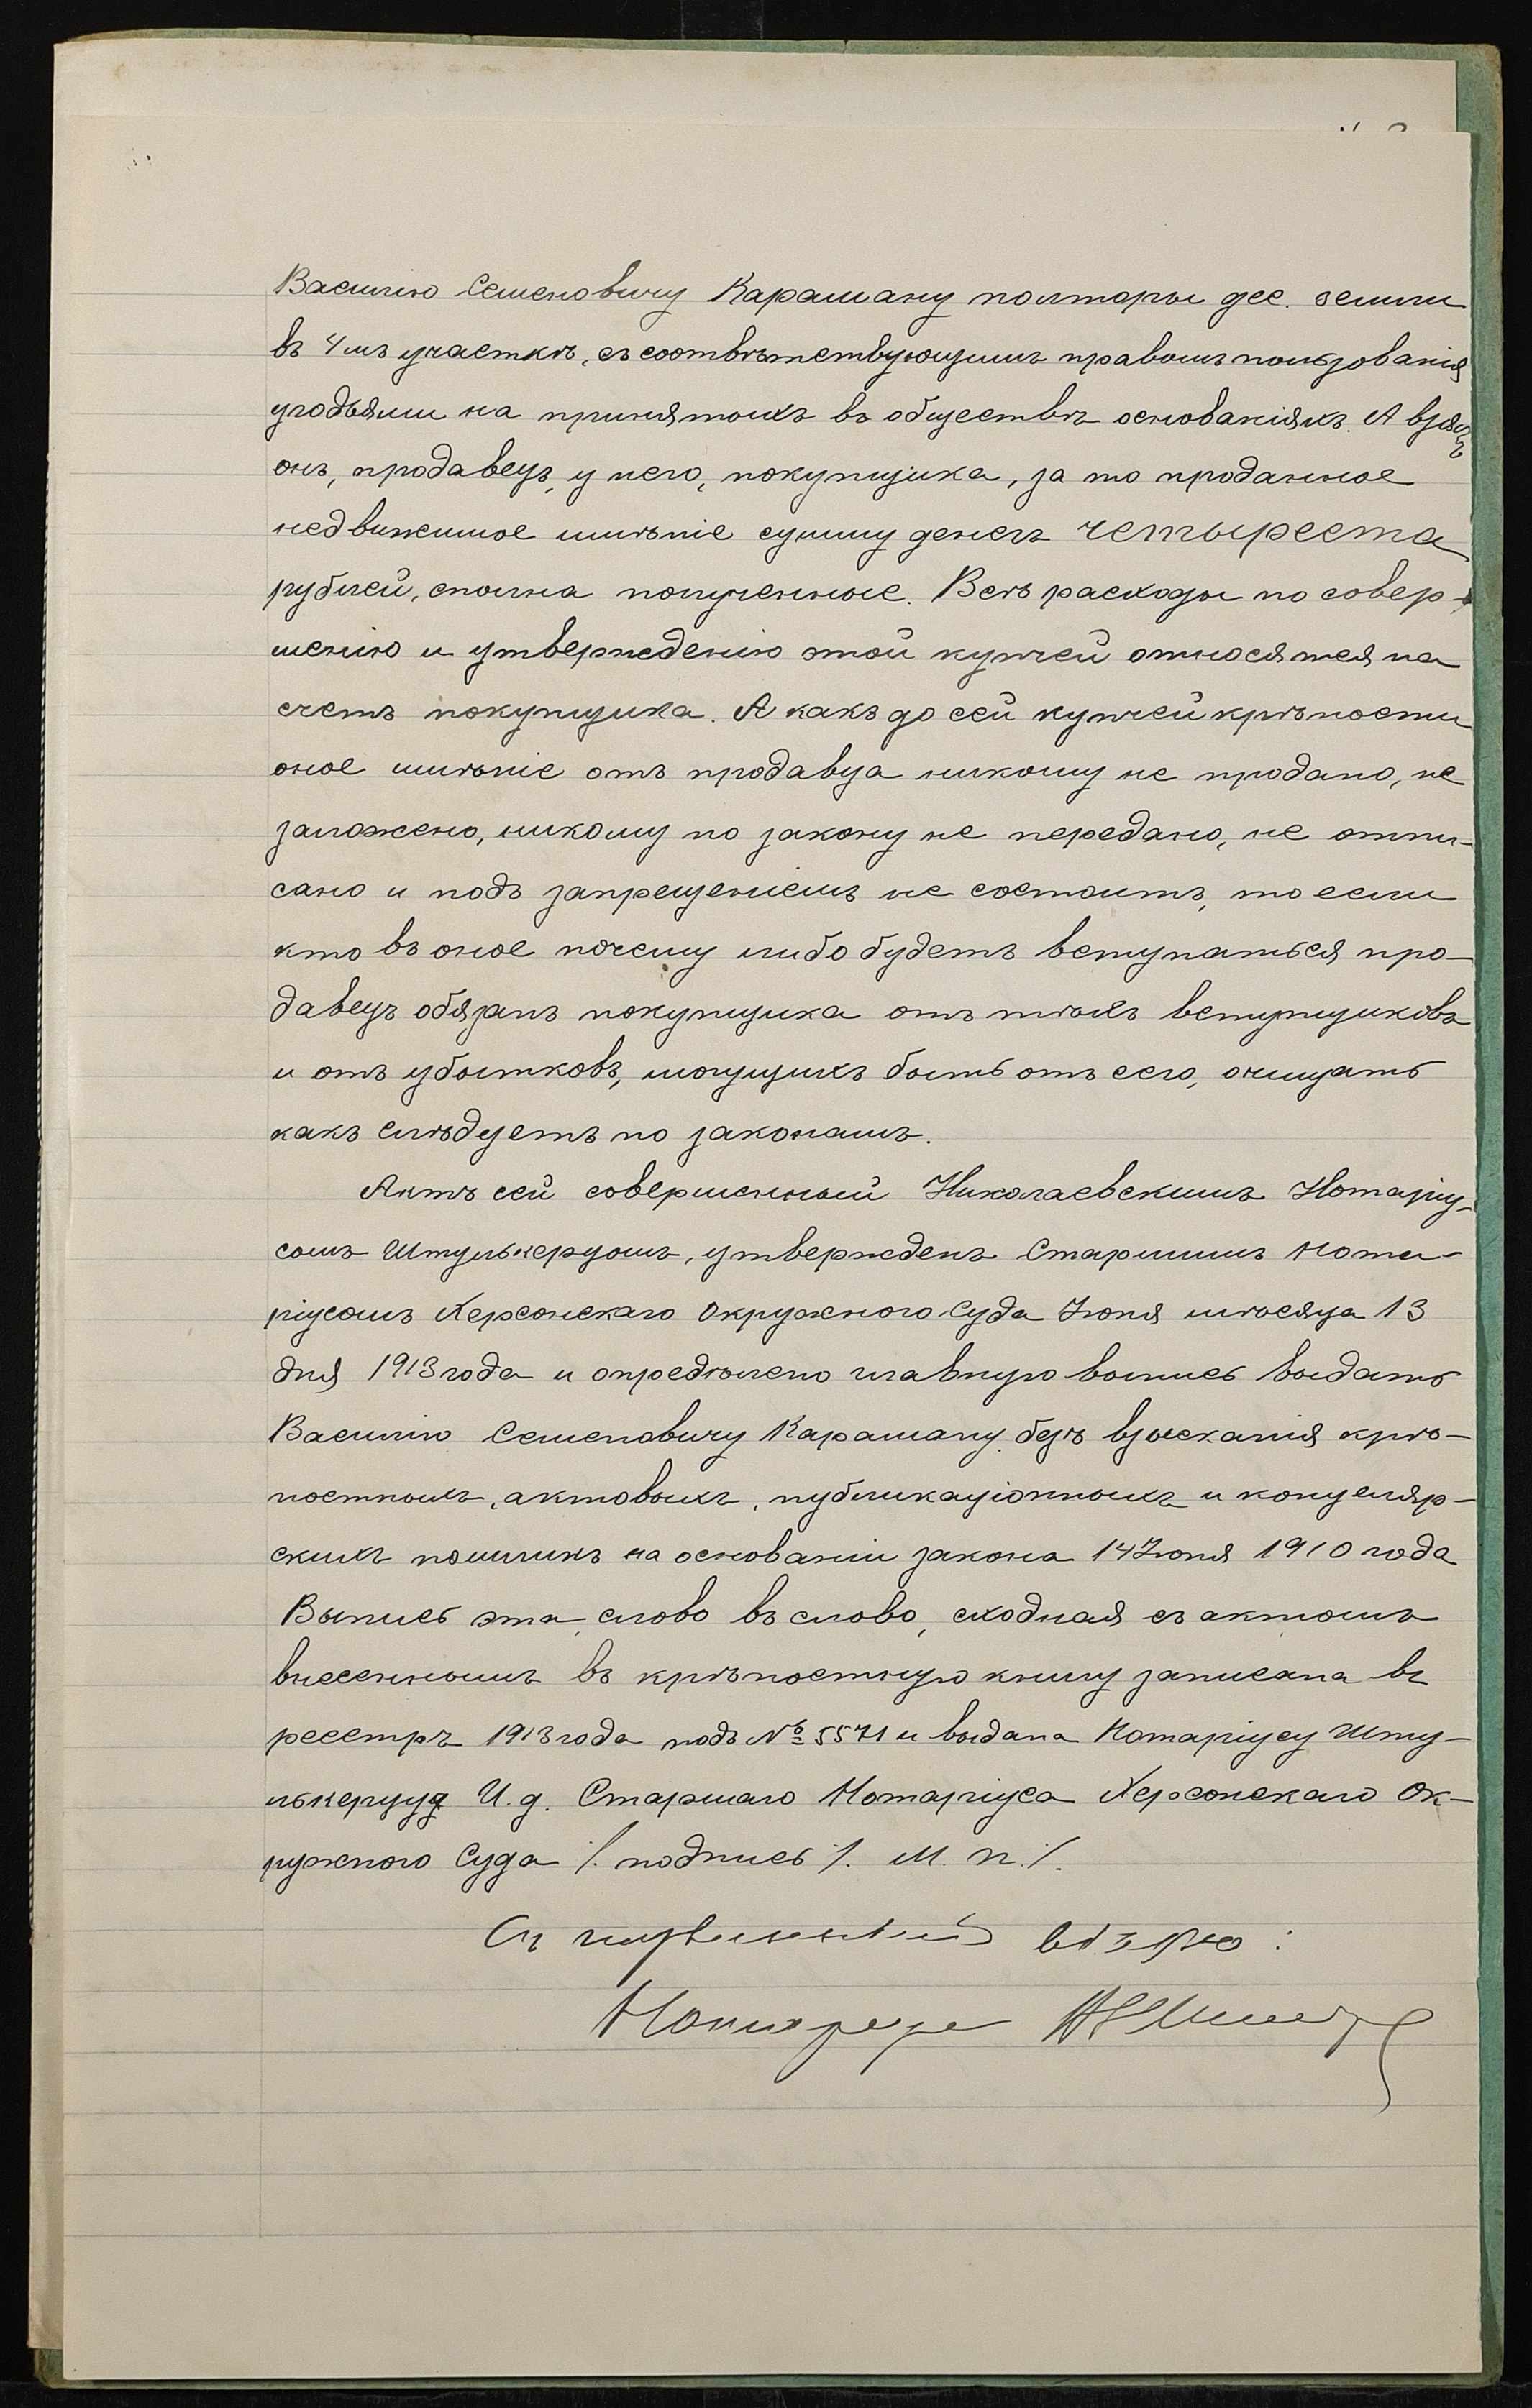 Василію Семеновичу Караману полторы дес. земли
въ 4мъ участкѣ, съ соотвѣтствующимъ правомъ пользованія
угодьями на принятыхъ въ обществѣ основаніяхъ. А взялъ
онъ, продавецъ, у него, покупщика, за то проданное
недвижимое имѣніе сумму денегъ четыреста
рублей, сполна полученные. Всѣ расходы по совер-
шенію и утвержденію этой купчей относятся на
счетъ покупщика. А какъ до сей купчей крѣпости
оное имѣніе отъ продавца никому не продано, не
заложено, никому по закону не передано, не отпи-
сано и подъ запрещеніемъ не состоитъ, то если
кто въ оное почему либо будетъ вступаться про-
давецъ обязанъ покупщика отъ тѣхъ вступщиковъ
и отъ убытковъ, могущихъ быть отъ сего, очищать
какъ слѣдуетъ по законамъ.
Актъ сей совершенный Николаевскимъ Нотаріу-
сомъ Штулькерцомъ, утвержденъ Старшимъ Нота-
ріусомъ Херсонскаго Окружного Суда Іюня мѣсяца 13
дня 1913 года и опредѣлено главную выпись выдать
Василію Семеновичу Караману безъ взысканія крѣ-
постныхъ, актовыхъ, публикаціонныхъ и концеляр-
скихъ пошлинъ на основаніи закона 14 Іюня 1910 года
Выпись эта слово въ слово, сходная съ актомъ
внесеннымъ въ крѣпостную книгу записана въ
реестръ 1913 года подъ № 5571 и выдана Нотаріусу Шту-
лькерцу И. д. Старшаго Нотаріуса Херсонскаго Ок-
ружного Суда /. подпись /. М. п. /.
Съ подлиннымъ вѣрно:
Нотаріусъ